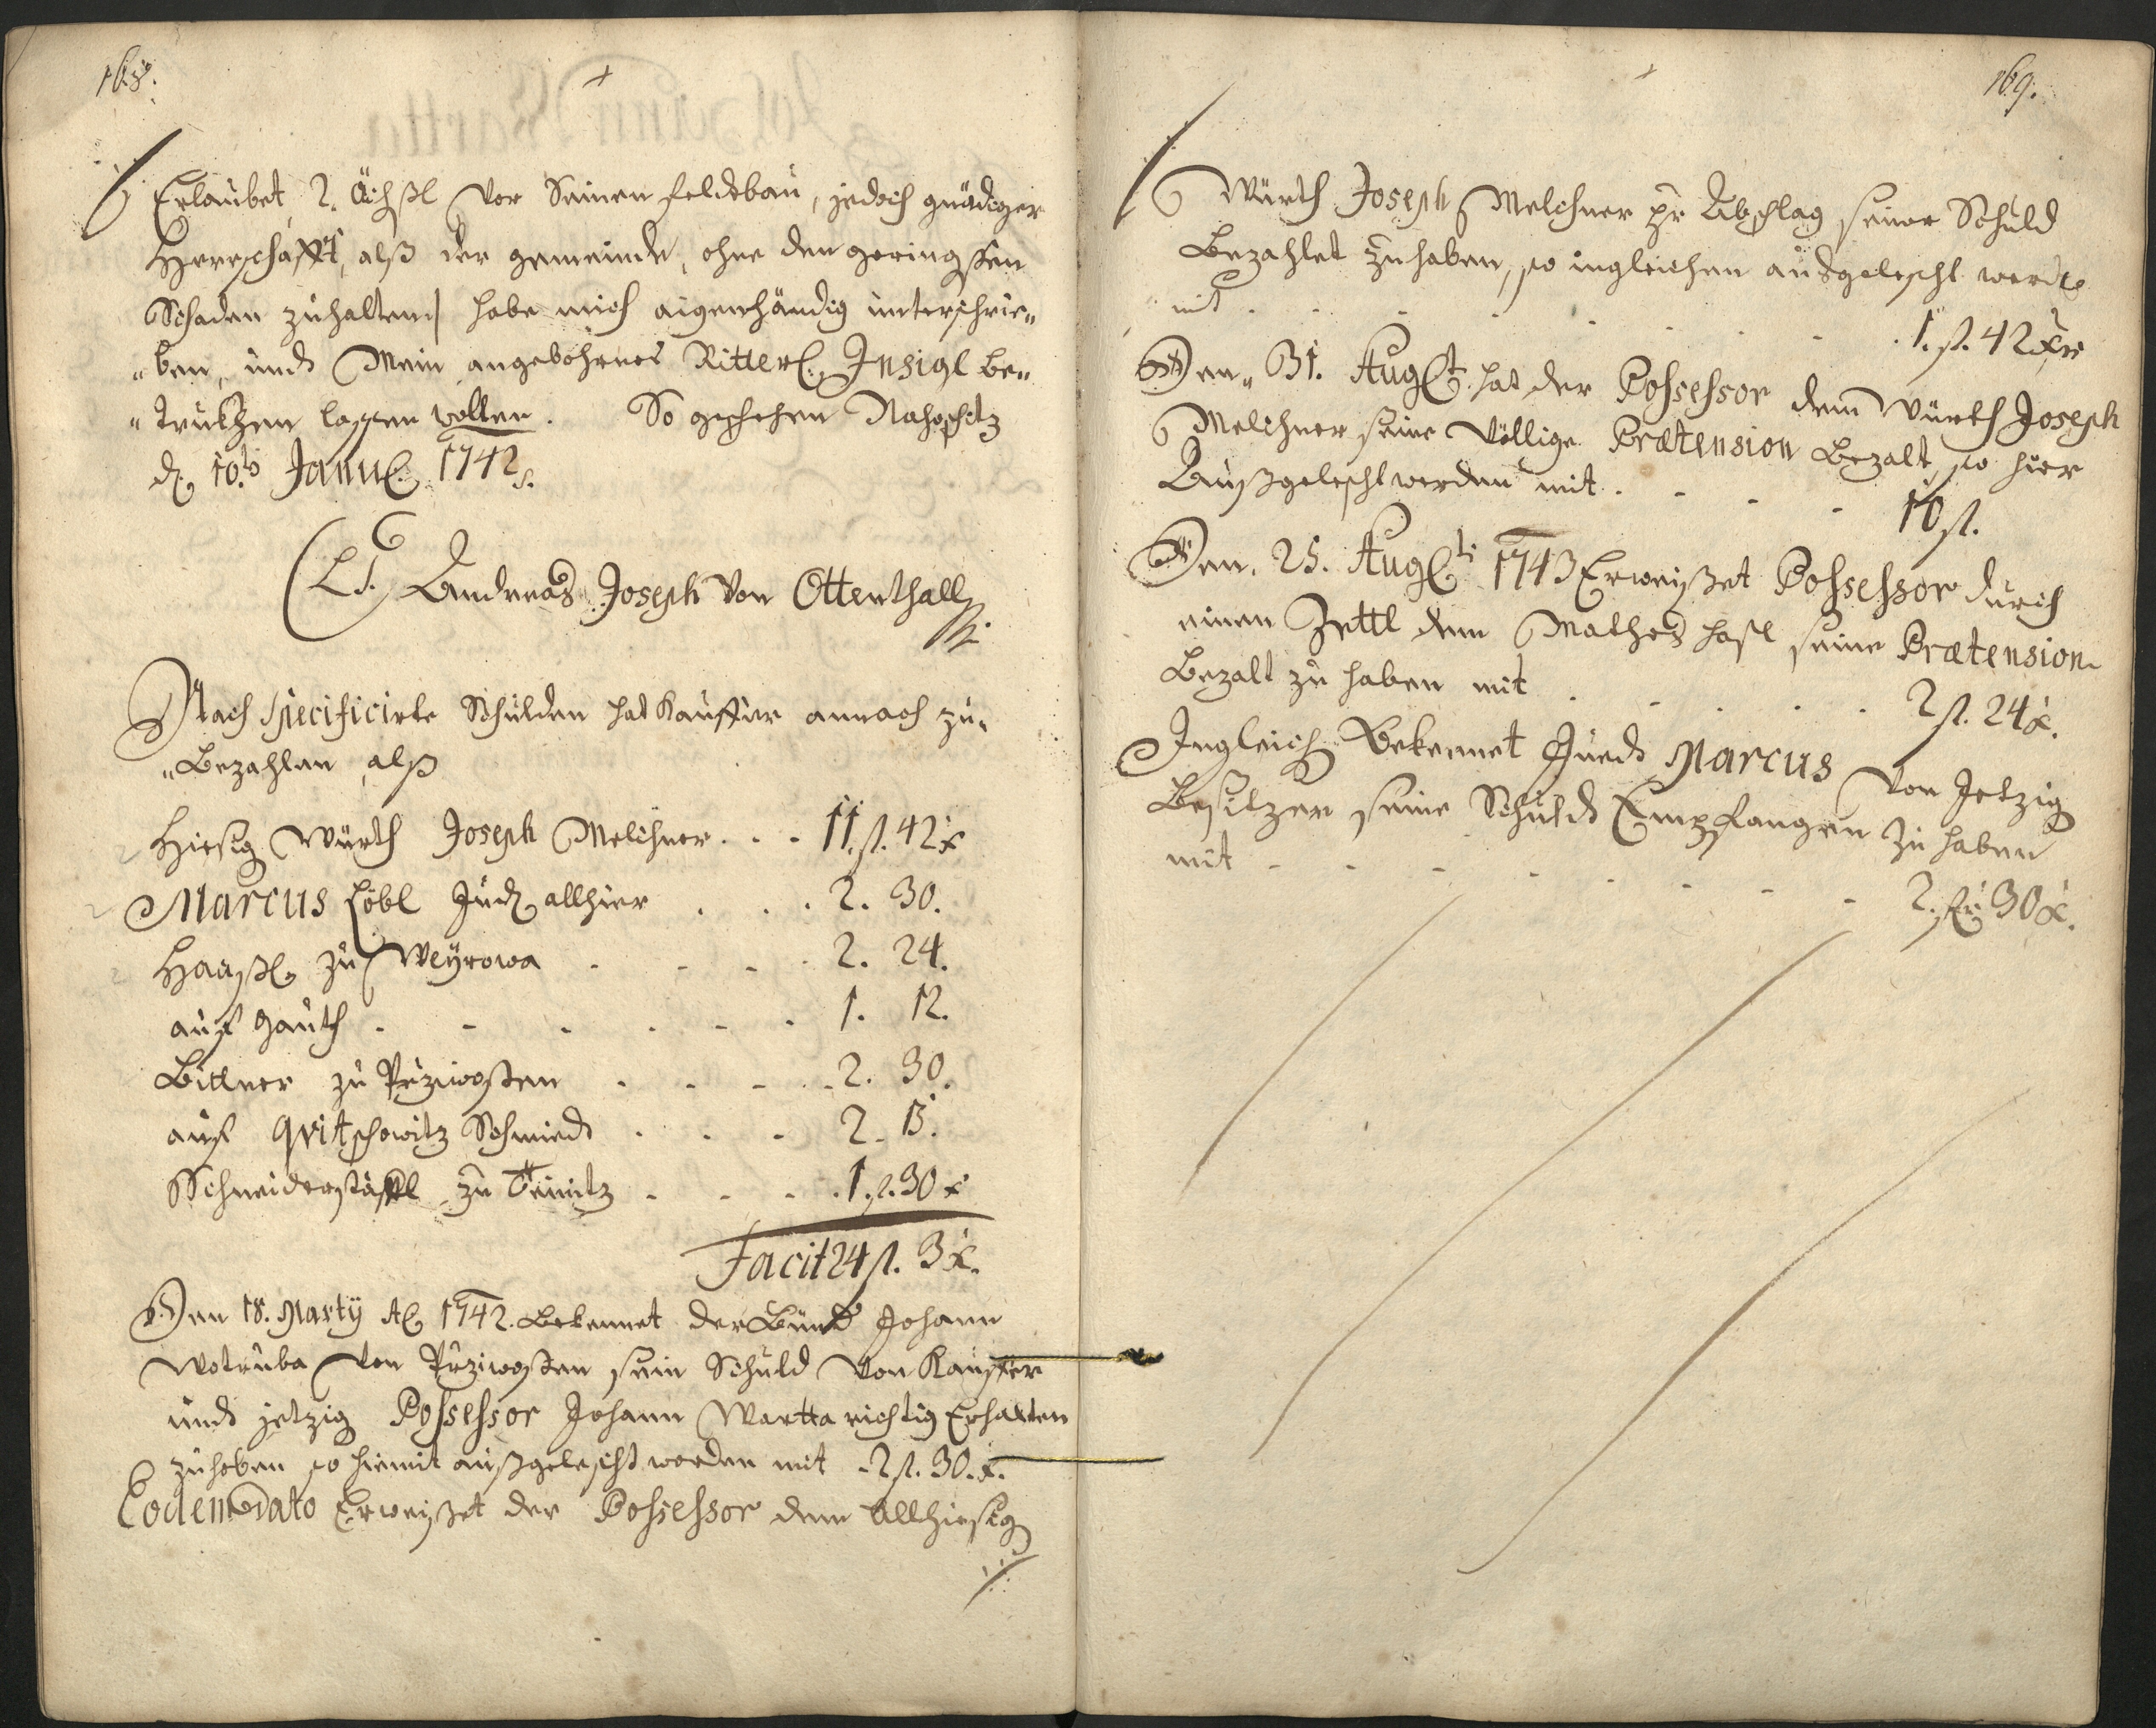 168.
Erlaubet 2. Öchßl vor Seinen feldtbau, jedoch gnädiger
Herrschafft, alß der gemeinde, ohne den geringsten
Schaden zuhalten| habe mich aigenhändig unterschrie„
„ben, undt Mein angebohrnes Ritterl. Insigl be„
„trukhen lassen wollen. So geschehen Nahoschitz
d. 10ts Janu. 1742.
(L.S.) Andreas Joseph von Ottenthall
Nach specificirte Schulden hat Kauffer annoch zu„
„Bezahlen, alß
Hiesig Würth Joseph Melchner . . . 11. fl. 42 x
Marcus Löbl Jud allhier . . . 2. 30.
Haaßl zu Weyrowa . . . . 2. 24.
auf Hauth . . . . . . 1. 12.
Bittner zu Przewosten . . . . 2. 30.
auf Qvitschowitz Schmiedt . . . 2. 15.
Schneiderstaffl zu Teinitz . . . 1. fl. 30 x
Facit 24 fl. 3 x.
Den 18. Marty A 1742. Bekennet der Bündt Johann
Wotruba von Przewosten sein Schuld von Kauffer
undt jetzig Possessor Johann Wartta richtig Erhalten
zuhaben so hiemit außgelescht worden mit . 2 fl. 30. x.
Eodem Dato Erweißet der Possessor dem Allhiesig
169.
Würth Joseph Melchner pr Abschlag seiner Schuld
Bezahlet zuhaben, so ingleichen ausgelescht werdt
mit . . . . . . . 1. fl. 42 xr
Den 31. Augt. hat der Possessor dem Würth Joseph
Melchner seine völlige Prætension Bezalt, so hier
Außgelescht werden mit . . . . 10 fl.
Den 25. Augti 1743 Erweißet Possessor durch
einen Zettl dem Mathes Hasl seine Prætension
Bezalt zu haben mit . . . . . 2 fl. 24 x.
Ingleich Bekennet Juedt Marcus von Jetzig
Besitzer seine Schuldt Empfangen zu haben
mit . . . . . . . . 2. fl. 30 x.